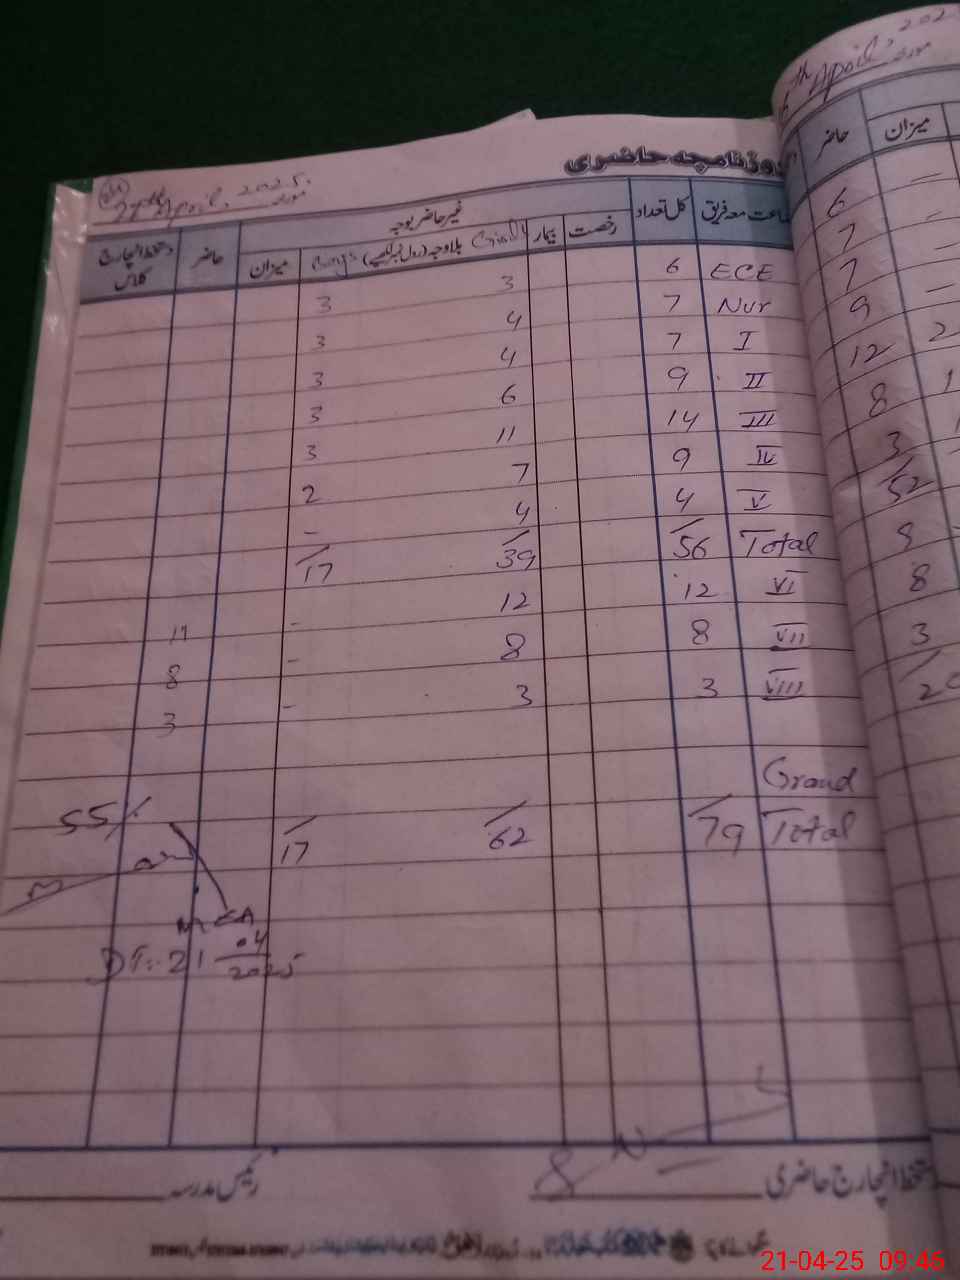 روزنامچہ حاضری
21th April, 2025.
مورخہ
جماعت معہ فریق کل تعداد رخصت بیمار غیر حاضر بوجہ میزان حاضر دستخط انچارج کلاس
Girls بلاوجہ (رول نمبر لکھیے) Boys
ECE 6 3 3
Nur 7 4 3
I 7 4 3
II 9 6 3
III 14 11 3
IV 9 7 2
V 4 4 -
Total 56 39 17
VI 12 12 -
VII 8 8 - 11
VIII 3 3 - 8
3
Grand
Total 79 62 17
55/.
M EA
DT:- 21 04 2025
دستخط انچارج حاضری
رئیس مدرسہ
16th April, 202
مورخہ
حاضر میزان
6 -
7 -
7 -
9 -
12 2
8 1
3
52
9
8
3
21-04-25 09:46